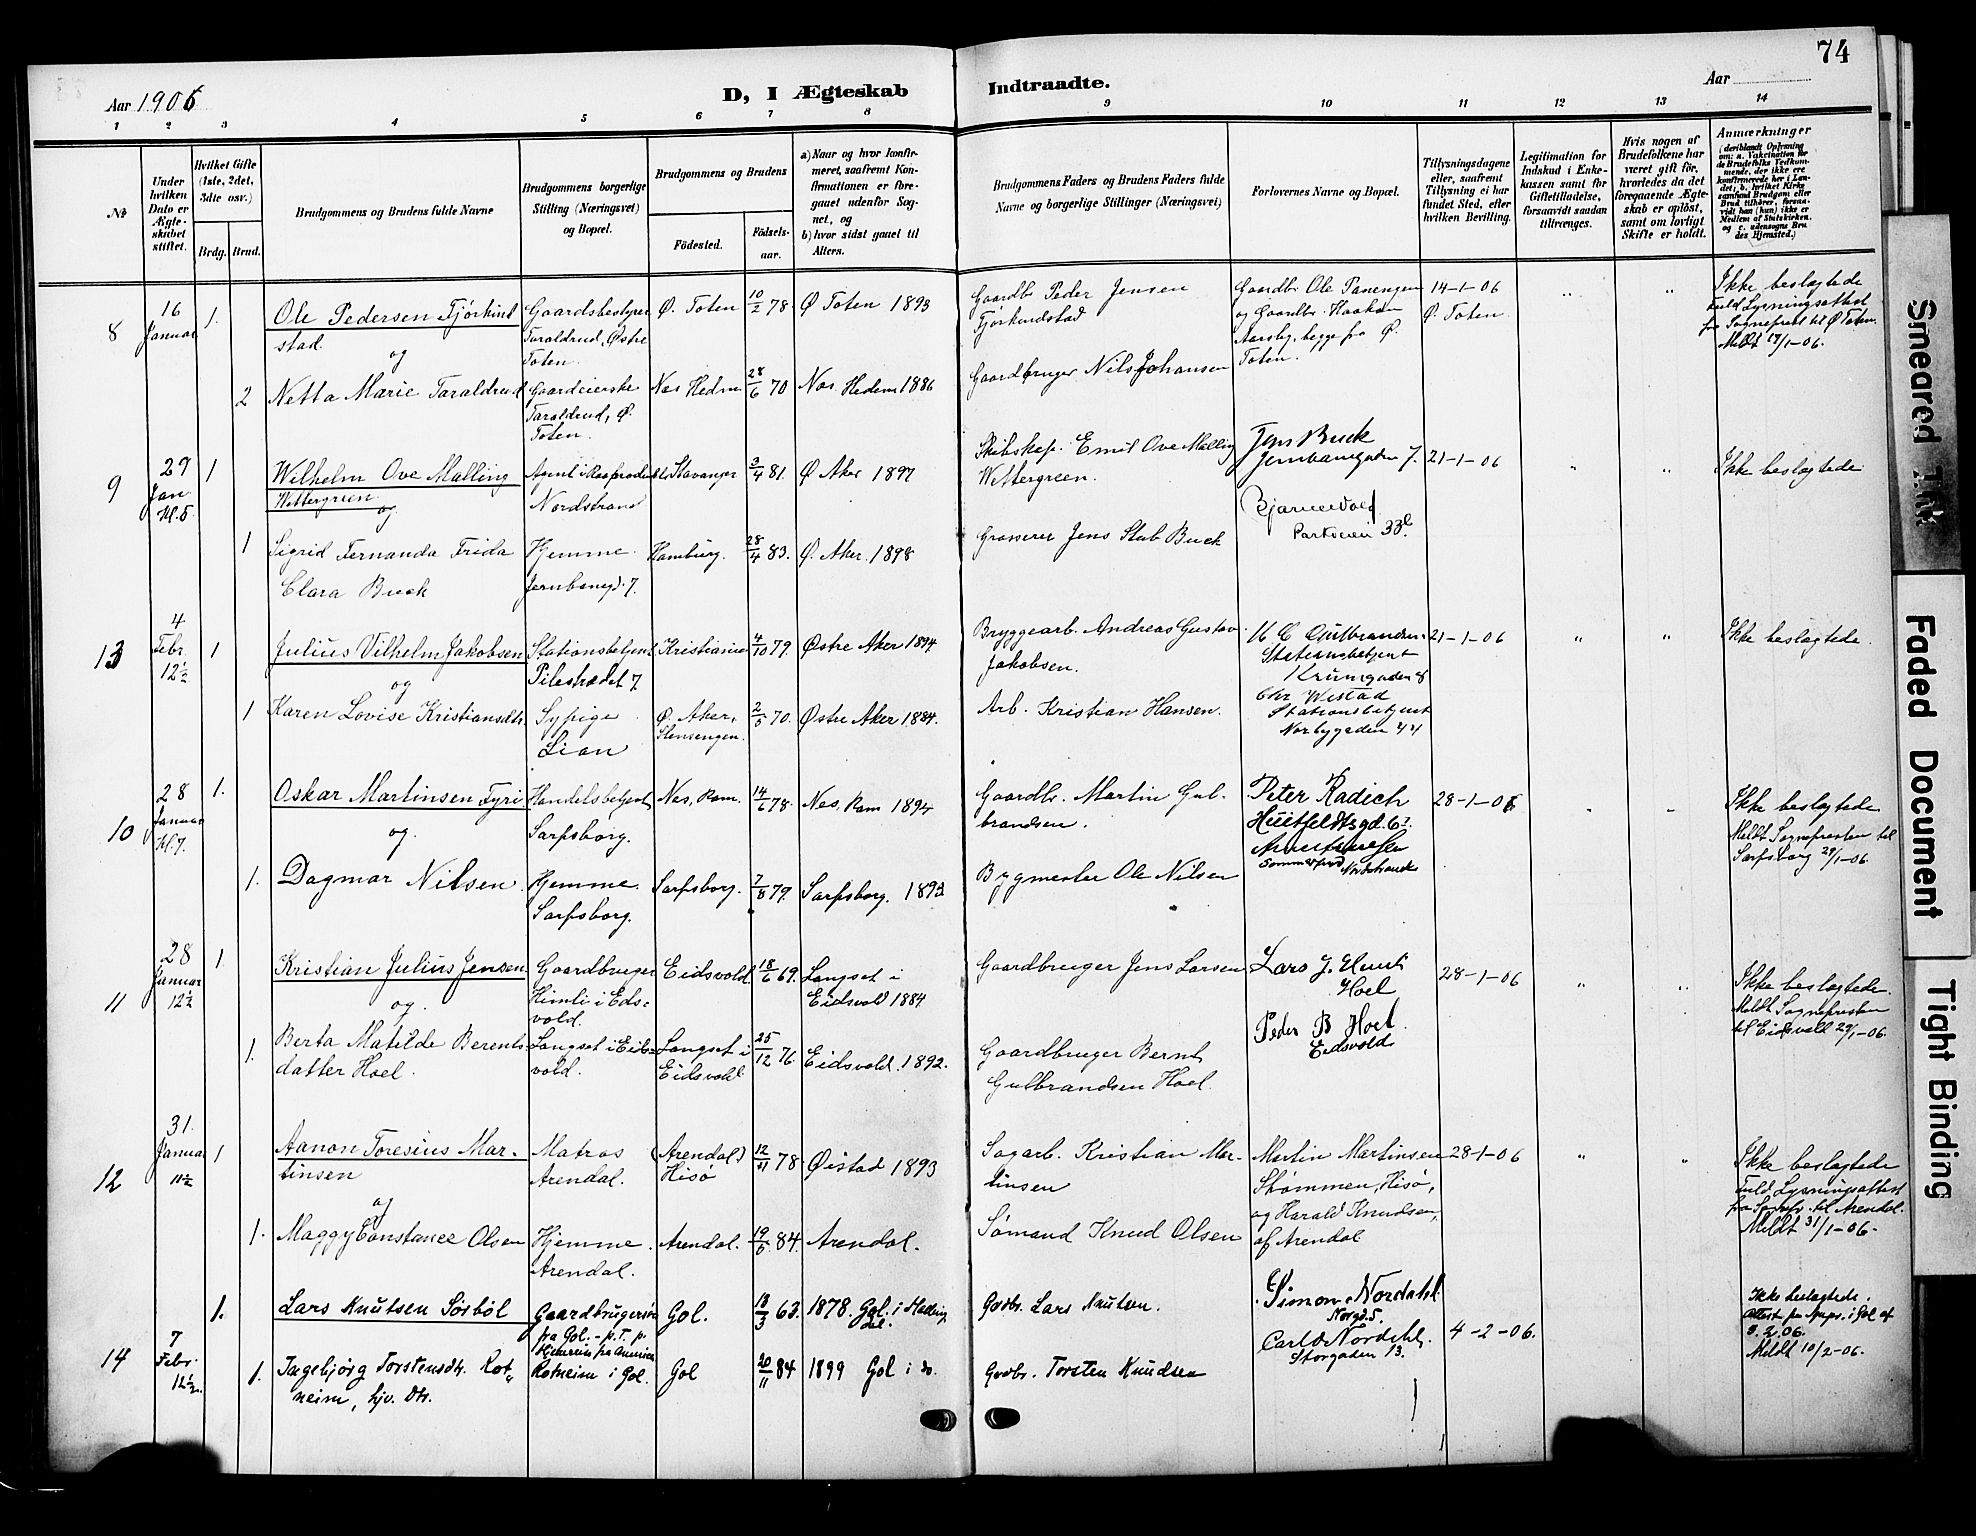 74
Aar 1906
D, I Ægteskab Indtraadte.
Aar
1 2 3 4 5 6 7 8 9 10 11 12 13 14
№
Under hvilken Dato er Ægteskabet stiftet.
Hvilket Gifte (1ste, 2det, 3die osv.)
Brdg. Brud.
Brudgommens og Brudens fulde Navne
Brudgommens borgerlige Stilling (Næringsvei) og Bopæl.
Brudgommens og Brudens
Födested.
Födsels-aar.
a) Naar og hvor konfirmeret, saafremt Konfirmationen er foregaaet udenfor Sognet, og
b) hvor sidst gaaet til Alters.
Brudgommens Faders og Brudens Faders fulde Navne og borgerlige Stillinger (Næringsvei)
Forlovernes Navne og Bopæl.
Tillysningsdagene eller, saafremt Tillysning ei har fundet Sted, efter hvilken Bevilling.
Legitimation for Indskud i Enkekassen samt for Giftetilladelse, forsaavidt saadan tiltrænges.
Hvis nogen af Brudefolkene har været gift för, hvorledes da det foregaaende Ægteskab er oplöst, samt om lovligt Skifte er holdt.
Anmærkninger
(deriblandt Oplysning om: a. Vakcination for de Brudefolks Vedkommende, der ikke ere konfirmerede her i Landet; b. hvilket Kirkesamfund Brudgom eller Brud tilhører, forsaavidt han (hun) ikke er Medlem af Statskirken, og c. udensogns Brudes Hjemsted.)
8
16 Januar
1.
Ole Pedersen Fjørkindstad
og
Gaardsbestyrer Taraldrud, Østre Toten.
Ø. Toten
10/2 78.
Ø Toten 1893
Gaardbr Peder Jensen Fjørkindstad
Gaardbr. Ole Panengen og Gaardbr. Haakon Aarsby, begge fra Ø. Toten.
14-1-06 Ø. Toten.
Ikke beslægtede
Fuld Lysningsattest fra Sogneprest til Ø Toten.
Meldt 17/1-06.
2
Netta Marie Taraldrud
Gaardeierske Taraldrud, Ø. Toten.
Nes Hedm
28/6 70
Nes. Hedem 1886
Gaardbruger Nils Johansen
9
29 Jan. Kl. 5.
1
Wilhelm Ove Malling Wittergreen
og
Nordstrand
Stavanger
3/4 81.
Ø Aker 1897
Skibskap. Emil Ove Malling Wittergreen.
Jens Buck
Jernbanegaden 7.
Parkveien 33 b.
21-1-06
Ikke beslægtede
1
Sigrid Fernanda Frida Clara Buck
Hjemme. Jernbanegd. 7.
Hamburg.
28/4 83.
Ø. Aker. 1898
Grosserer Jens Stub Buck
13
4 Febr. 12½
1
Julius Vilhelm Jakobsen
og
Stationsbetjent Pilestrædet 7
Kristiania
4/10 79.
Østre Aker 1894
Bryggearb. Andreas Gustav Jakobsen.
H C Gulbrandsen Stationsbetjent Krumgaden 8
Chr Westad Stationsbetjent Norbygaden 44
21-1-06
Ikke beslægtede.
1
Karen Lovise Kristiansdtr.
Sypige Lian
Ø. Aker, Stensengen.
2/5 70.
Østre Aker 1884.
Arb. Kristian Hansen.
10
28 Januar Kl. 7.
1.
Oskar Martinsen Fyri
og.
Handelsbetjent, Sarpsborg.
Nes, Rom.
14/6 78.
Nes, Rom 1894
Gaardbr. Martin Gulbrandsen.
Peter Radich
Huitfeldtsgd. 6
Nordstrand
28-1-06
Ikke beslægtede
Meldt Sognepresten til Sarpsborg 29/1-06.
1.
Dagmar Nilsen
Hjemme. Sarpsborg.
Sarpsborg.
7/8 79.
Sarpsborg. 1893
Bygmester Ole Nilsen
11
28 Januar 12½
1
Kristian Julius Jensen
og.
Gaardbruger Himli i Eidsvold.
Eidsvold
18/6 69.
Langset i Eidsvold 1884
Gaardbruger Jens Larsen
Lars J. Hoel
Peder B Hoel. Eidsvold.
28-1-06
Ikke beslægtede.
Meldt Sognepresten til Eidsvold 29/1-06.
1.
Berta Matilde Berentsdatter Hoel.
Langset i Eidsvold.
Langset i Eidsvold.
25/12 76.
Eidsvold. 1892.
Gaardbruger Bernt Gulbrandsen Hoel.
12
31. Januar 11½
1
Aanon Toresius Martinsen
og
Matros Arendal.
(Arendal) Hisø
12/11 78
Øistad 1893
Sagarb. Kristian Martinsen
Martin Martinsen Strømmen, Hisø, og Harald Knudsen, af Arendal
28-1-06
Ikke beslægtede
Fuld. Lysningsattest fra Sognepr. til Arendal.
Meldt 31/1-06.
1.
Maggy Constance Olsen
Hjemme. Arendal.
Arendal.
19/5 84.
Arendal.
Sømand Knud Olsen
14
7 Febr. 12½
1.
Lars Knutsen Sørbøl
Gaardbrugersøn fra Gol. - p.T. p. Hjemreis fra Amerika
Gol.
13/3 63.
1878. Gol. i Hallingdal.
Grdbr. Lars Knutsen.
Simon Nordahl Norgd. 5.
Carl Nordahl. Storgaden 13.
4-2-06.
Ikke beslægtede.
Attest fra Sognpr. i Gol af 3.2.06.
Meldt 10/2-06.
1.
Ingebjörg Torstensdtr. Rotneim, hjv. Dtr.
Rotneim i Gol.
Gol
20/11 84
1899 Gol i H.
Grdbr. Torsten Knudsen
Smeared Ink
Faded Document
Tight Binding